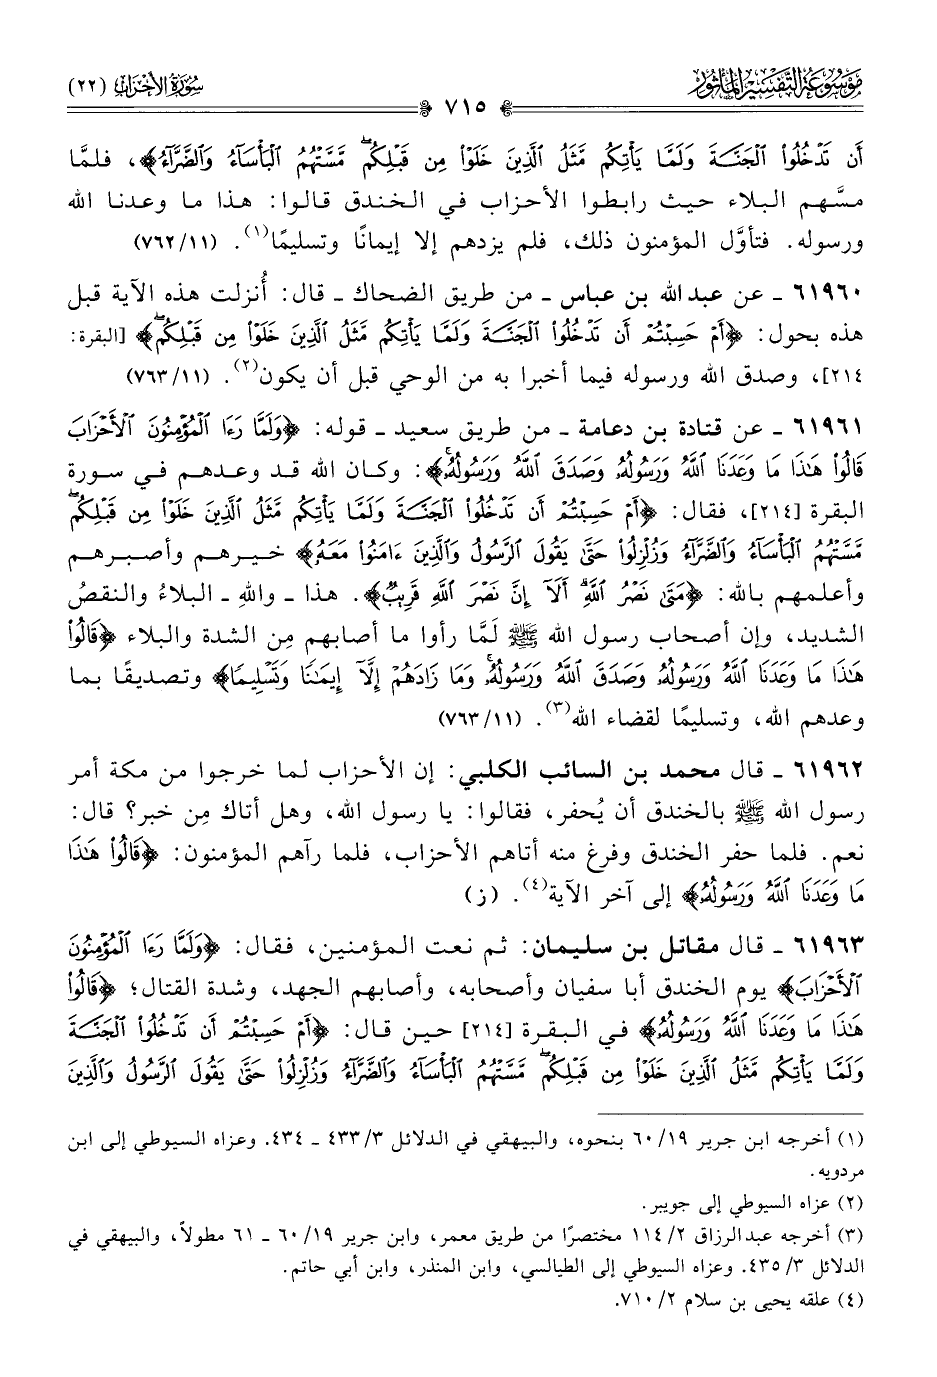 موسوعة التفسير المأثور
سورة الأحزاب (٢٢)
٧١٥
أَن تَدْخُلُوا۟ ٱلْجَنَّةَ وَلَمَّا يَأْتِكُم مَّثَلُ ٱلَّذِينَ خَلَوْا۟ مِن قَبْلِكُم ۖ مَّسَّتْهُمُ ٱلْبَأْسَآءُ وَٱلضَّرَّآءُ﴾، فلمَّا
مسَّهم البلاء حيث رابطوا الأحزاب في الخندق قالوا: هذا ما وعدنا الله
ورسوله. فتأوَّل المؤمنون ذلك، فلم يزدهم إلا إيمانًا وتسليمًا(١). (١١/ ٧٦٢)
٦١٩٦٠ ـ عن عبد الله بن عباس ـ من طريق الضحاك ـ قال: أُنزلت هذه الآية قبل
هذه بحول: ﴿أَمْ حَسِبْتُمْ أَن تَدْخُلُوا۟ ٱلْجَنَّةَ وَلَمَّا يَأْتِكُم مَّثَلُ ٱلَّذِينَ خَلَوْا۟ مِن قَبْلِكُم ۖ﴾ [البقرة:
٢١٤]، وصدق الله ورسوله فيما أخبرا به من الوحي قبل أن يكون(٢). (١١/ ٧٦٣)
٦١٩٦١ ـ عن قتادة بن دعامة ـ من طريق سعيد ـ قوله: ﴿وَلَمَّا رَءَا ٱلْمُؤْمِنُونَ ٱلْأَحْزَابَ
قَالُوا۟ هَٰذَا مَا وَعَدَنَا ٱللَّهُ وَرَسُولُهُۥ وَصَدَقَ ٱللَّهُ وَرَسُولُهُۥ ۚ﴾: وكان الله قد وعدهم في سورة
البقرة [٢١٤]، فقال: ﴿أَمْ حَسِبْتُمْ أَن تَدْخُلُوا۟ ٱلْجَنَّةَ وَلَمَّا يَأْتِكُم مَّثَلُ ٱلَّذِينَ خَلَوْا۟ مِن قَبْلِكُم ۖ
مَّسَّتْهُمُ ٱلْبَأْسَآءُ وَٱلضَّرَّآءُ وَزُلْزِلُوا۟ حَتَّىٰ يَقُولَ ٱلرَّسُولُ وَٱلَّذِينَ ءَامَنُوا۟ مَعَهُۥ﴾ خيرهم وأصبرهم
وأعلمهم بالله: ﴿مَتَىٰ نَصْرُ ٱللَّهِ ۗ أَلَآ إِنَّ نَصْرَ ٱللَّهِ قَرِيبٌ﴾. هذا ـ واللهِ ـ البلاءُ والنقصُ
الشديد، وإن أصحاب رسول الله ﷺ لَمَّا رأوا ما أصابهم مِن الشدة والبلاء ﴿قَالُوا۟
هَٰذَا مَا وَعَدَنَا ٱللَّهُ وَرَسُولُهُۥ وَصَدَقَ ٱللَّهُ وَرَسُولُهُۥ ۚ وَمَا زَادَهُمْ إِلَّآ إِيمَٰنًا وَتَسْلِيمًا﴾ وتصديقًا بما
وعدهم الله، وتسليمًا لقضاء الله(٣). (١١/ ٧٦٣)
٦١٩٦٢ ـ قال محمد بن السائب الكلبي: إن الأحزاب لما خرجوا من مكة أمر
رسول الله ﷺ بالخندق أن يُحفر، فقالوا: يا رسول الله، وهل أتاك مِن خبر؟ قال:
نعم. فلما حفر الخندق وفرغ منه أتاهم الأحزاب، فلما رآهم المؤمنون: ﴿قَالُوا۟ هَٰذَا
مَا وَعَدَنَا ٱللَّهُ وَرَسُولُهُۥ﴾ إلى آخر الآية(٤). (ز)
٦١٩٦٣ ـ قال مقاتل بن سليمان: ثم نعت المؤمنين، فقال: ﴿وَلَمَّا رَءَا ٱلْمُؤْمِنُونَ
ٱلْأَحْزَابَ﴾ يوم الخندق أبا سفيان وأصحابه، وأصابهم الجهد، وشدة القتال؛ ﴿قَالُوا۟
هَٰذَا مَا وَعَدَنَا ٱللَّهُ وَرَسُولُهُۥ﴾ في البقرة [٢١٤] حين قال: ﴿أَمْ حَسِبْتُمْ أَن تَدْخُلُوا۟ ٱلْجَنَّةَ
وَلَمَّا يَأْتِكُم مَّثَلُ ٱلَّذِينَ خَلَوْا۟ مِن قَبْلِكُم ۖ مَّسَّتْهُمُ ٱلْبَأْسَآءُ وَٱلضَّرَّآءُ وَزُلْزِلُوا۟ حَتَّىٰ يَقُولَ ٱلرَّسُولُ وَٱلَّذِينَ
(١) أخرجه ابن جرير ١٩/ ٦٠ بنحوه، والبيهقي في الدلائل ٣/ ٤٣٣ ـ ٤٣٤. وعزاه السيوطي إلى ابن
مردويه.
(٢) عزاه السيوطي إلى جويبر.
(٣) أخرجه عبد الرزاق ٢/ ١١٤ مختصرًا من طريق معمر، وابن جرير ١٩/ ٦٠ ـ ٦١ مطولاً، والبيهقي في
الدلائل ٣/ ٤٣٥. وعزاه السيوطي إلى الطيالسي، وابن المنذر، وابن أبي حاتم.
(٤) علقه يحيى بن سلام ٢/ ٧١٠.